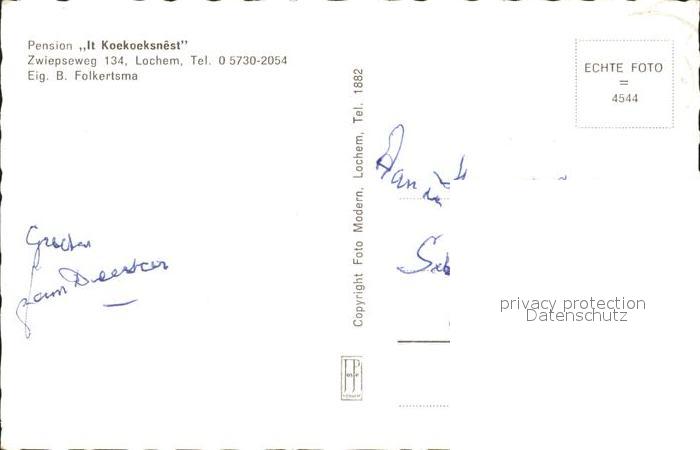 Pension „It Koekoeksnêst”
Zwiepseweg 134, Lochem, Tel. 0 5730-2054
Eig. B. Folkertsma
Groeten
Copyright Foto Modern, Lochem, Tel. 1882
ECHTE FOTO
=
4544
Aan
privacy protection
Datenschutz